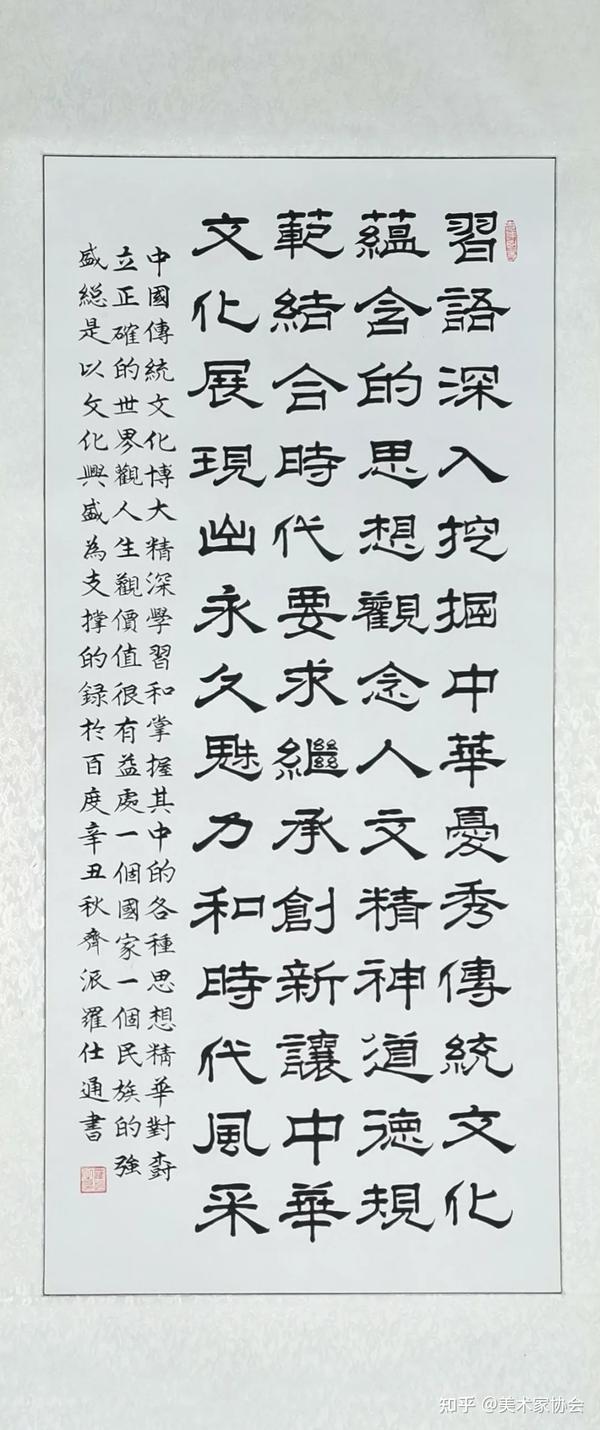 習語深入挖掘中華憂秀傳統文化
蘊含的思想觀念人文精神道德規
範結合時代要求繼承創新讓中華
文化展現出永久魅力和時代風采
中國傳統文化博大精深學習和掌握其中的各種思想精華對樹
立正確的世界觀人生觀價值很有益處一個國家一個民族的強
盛総是以文化興盛為支撐的録於百度辛丑秋齊派羅仕通書
知乎 @美术家协会